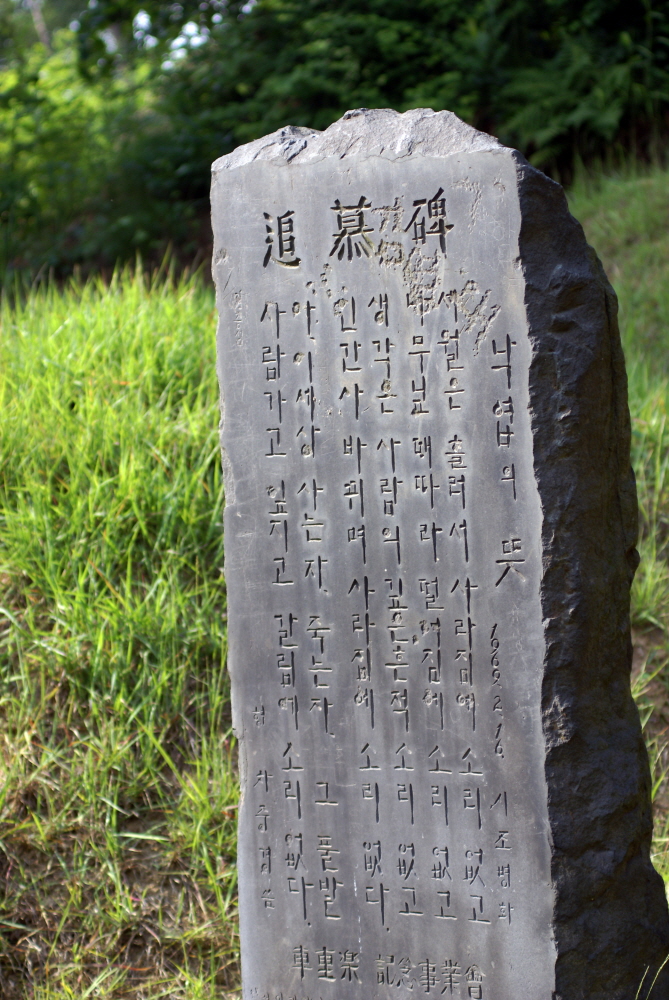 追慕碑
낙엽의 뜻 1969. 2. 16. 시 조병화
세월은 흘러서 사라짐에 소리 없고
나무닢 때따라 떨어짐에 소리 없고
생각은 사람의 깊은흔적 소리 없고
인간사 바뀌며 사라짐에 소리 없다.
아, 이세상 사는자, 죽는자, 그 풀밭
사람가고 잎지고 갈림에 소리 없다.
형 차중경 씀
車重楽 記念事業會